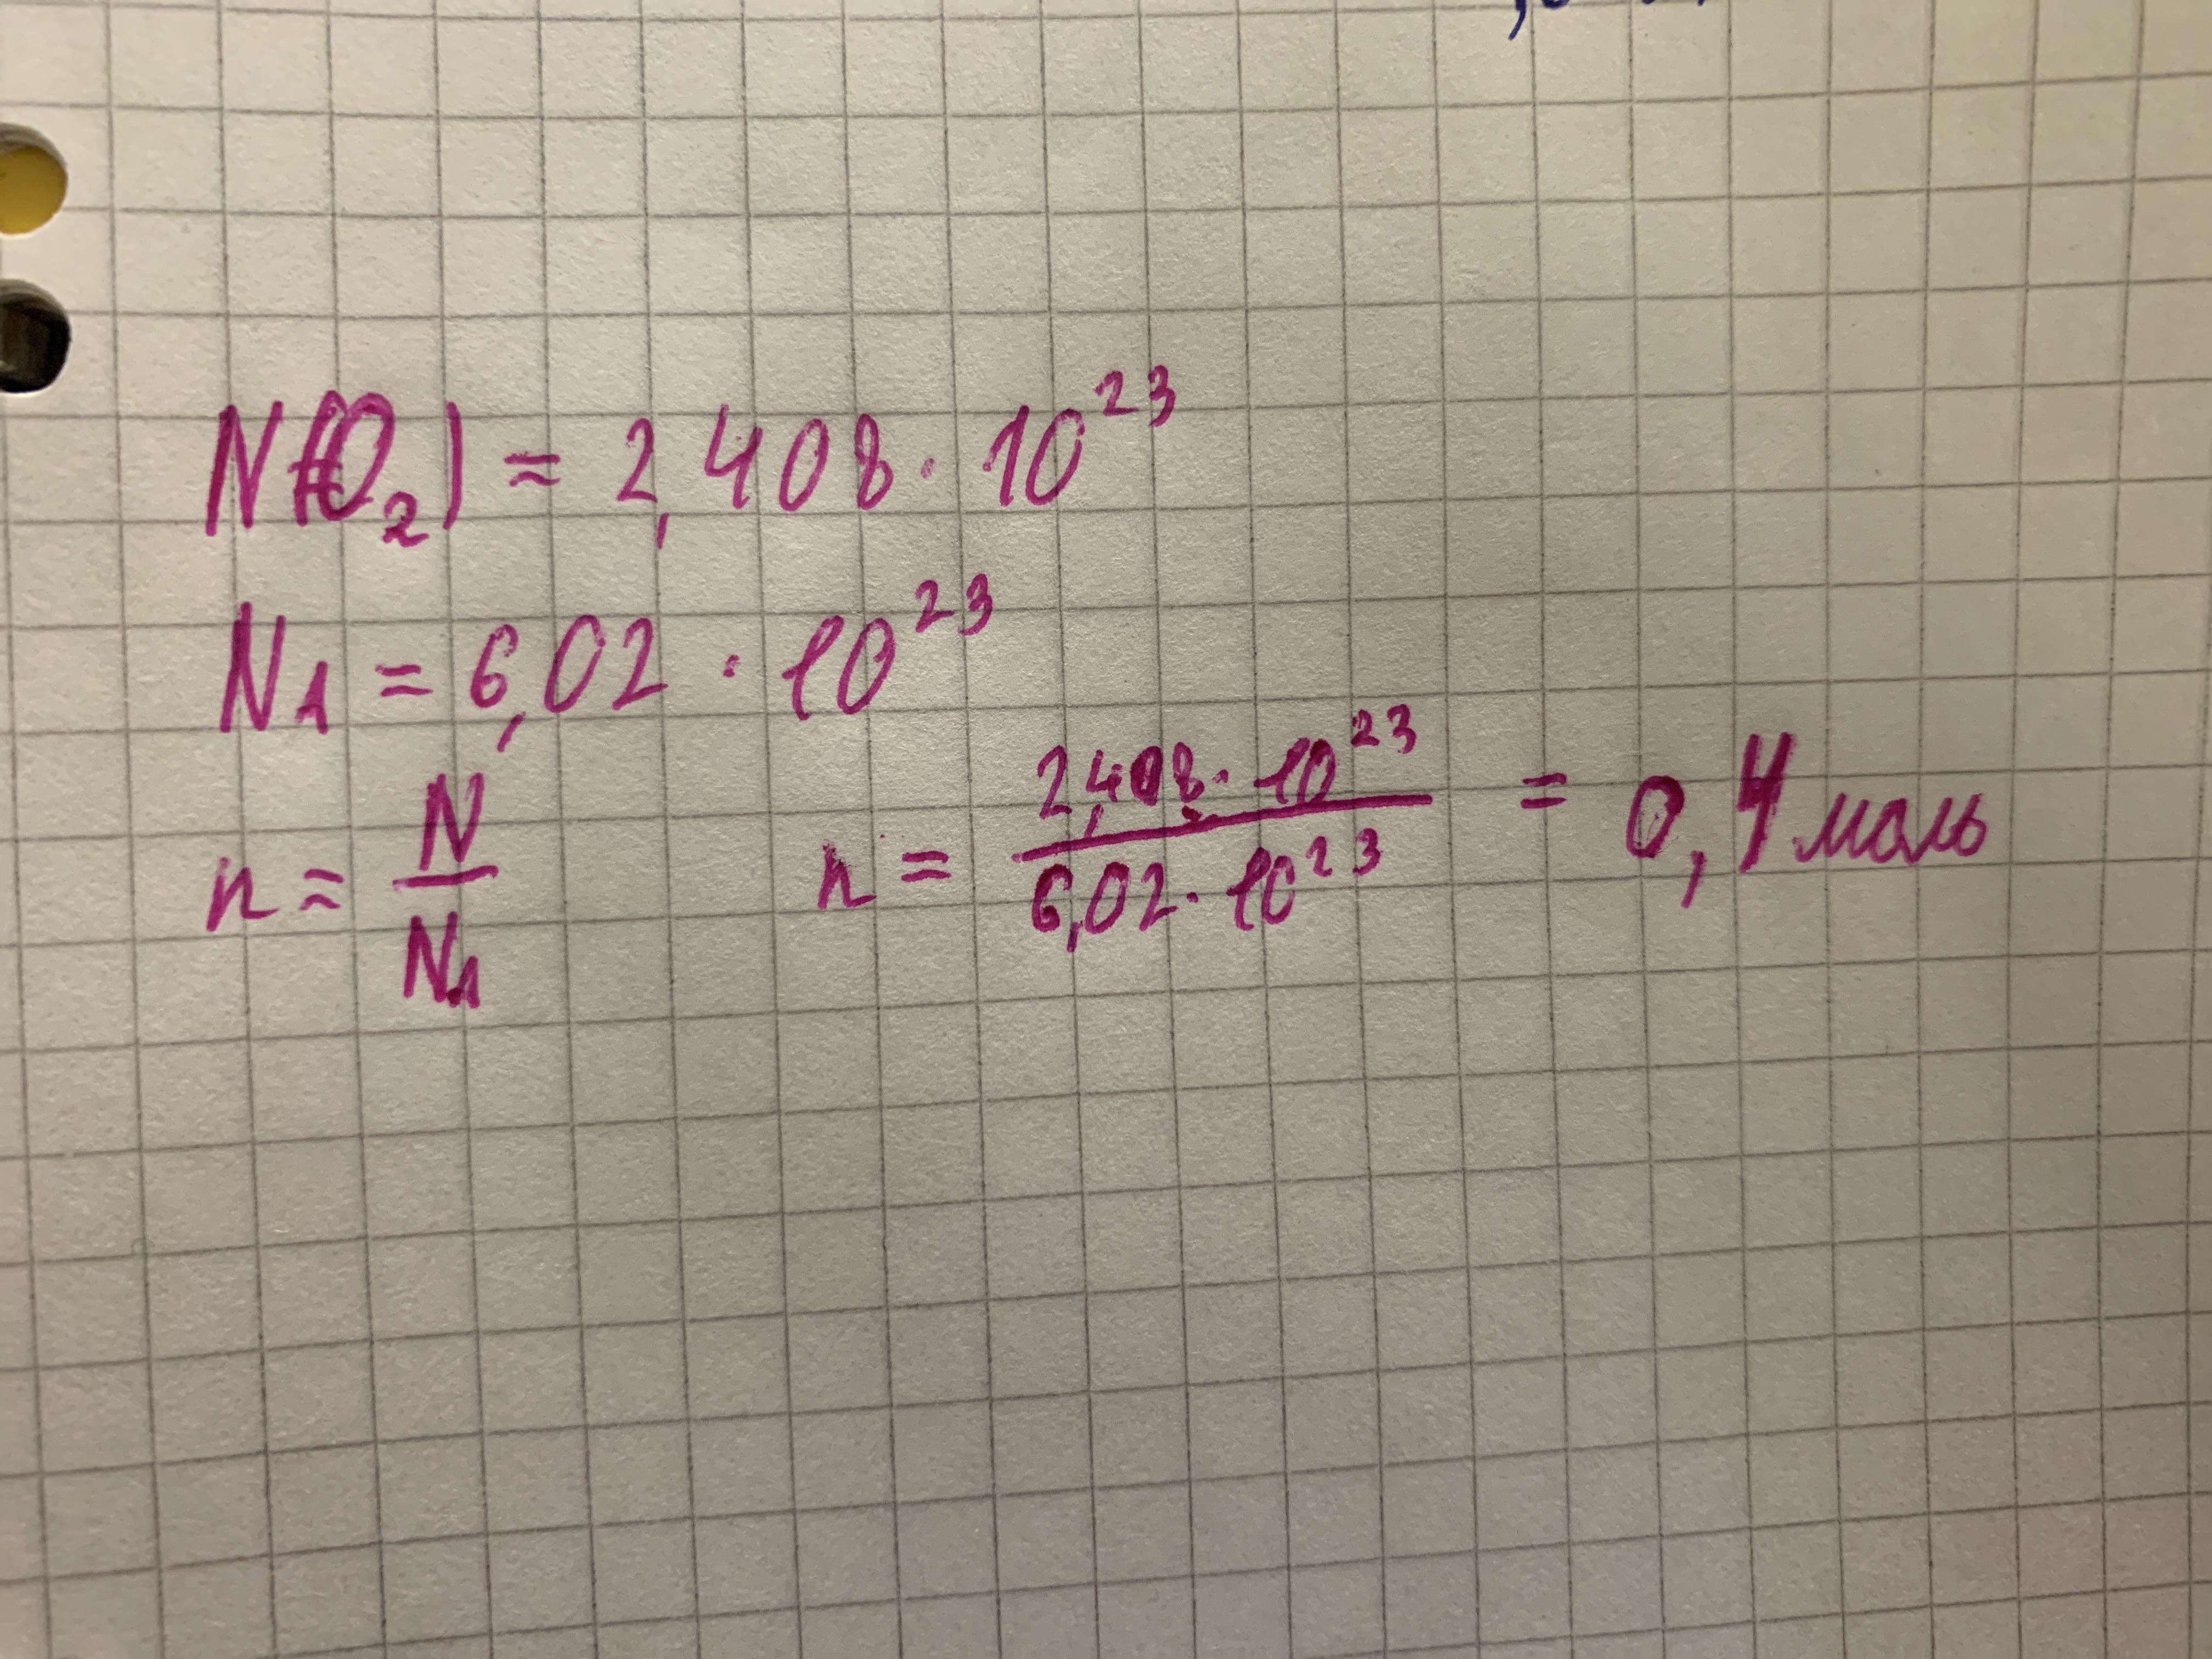 N(O₂) = 2,408 · 10²³
N_A = 6,02 · 10²³
n = N/N_A n = 2,408 · 10²³ / 6,02 · 10²³ = 0,4 моль